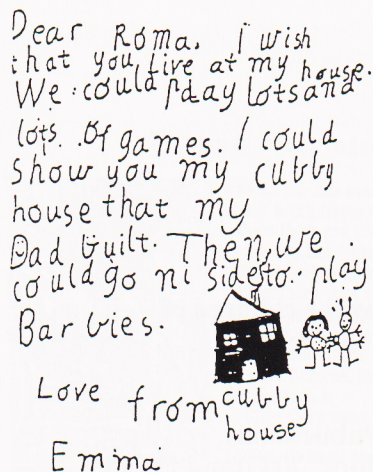 Dear Roma. I wish
that you live at my house.
We could pday lotsand
lots. Of games. I could
show you my cubby
house that my
Dad built. Then, we.
could go ni side to. play
Barbies.
Love from
cubby
house
Emma